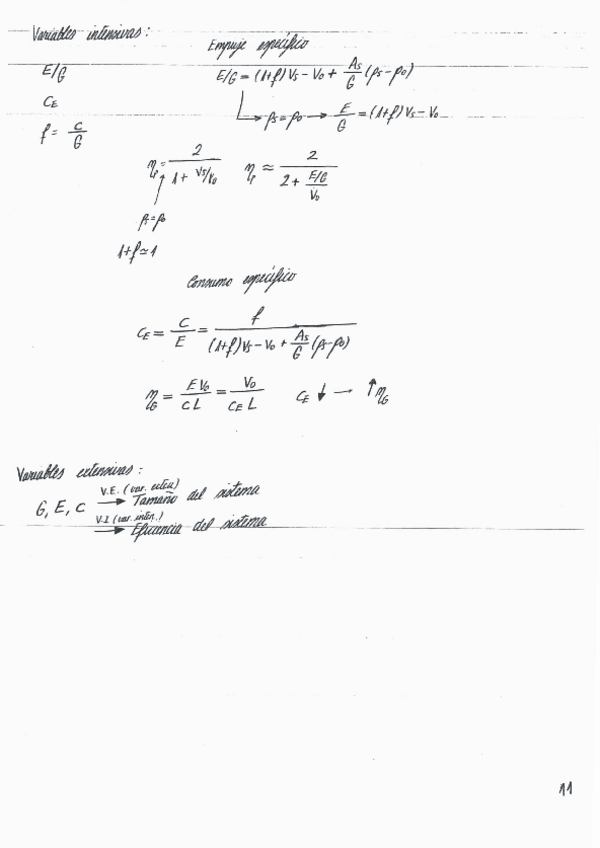 Variables intensivas:
Empuje específico
E/G
E/G = (1+f)Vs - V0 + As/G (ps - p0)
CE
ps = p0 → E/G = (1+f)Vs - V0
f = c/G
ηp = 2/(1 + Vs/V0)   ηp ≃ 2/(2 + (E/G)/V0)
ps = p0
1+f ≃ 1
Consumo específico
CE = C/E = f/((1+f)Vs - V0 + As/G (ps - p0))
ηG = E V0/(c L) = V0/(CE L)   CE ↓ → ↑ ηG
Variables extensivas:
G, E, C
V.E. (var. exten)
→ Tamaño del sistema
V.I (var. inten.)
→ Eficiencia del sistema
11